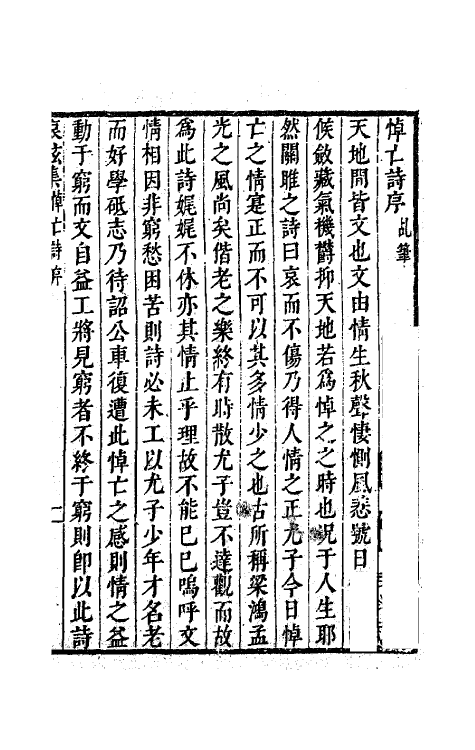 悼亡詩序 乩筆
天地間皆文也文由情生秋聲悽惻風悲號日
候斂藏氣機欝抑天地若為悼之之時也況于人生耶
然關雎之詩曰哀而不傷乃得人情之正尤子今日悼
亡之情寔正而不可以其多情少之也古所稱梁鴻孟
光之風尚矣偕老之樂終有時散尤子豈不達觀而故
為此詩娓娓不休亦其情止乎理故不能已已嗚呼文
情相因非窮愁困苦則詩必未工以尤子少年才名老
而好學砥志乃待詔公車復遭此悼亡之感則情之益
動于窮而文自益工將見窮者不終于窮則卽以此詩
哀絃集悼亡詩序 一